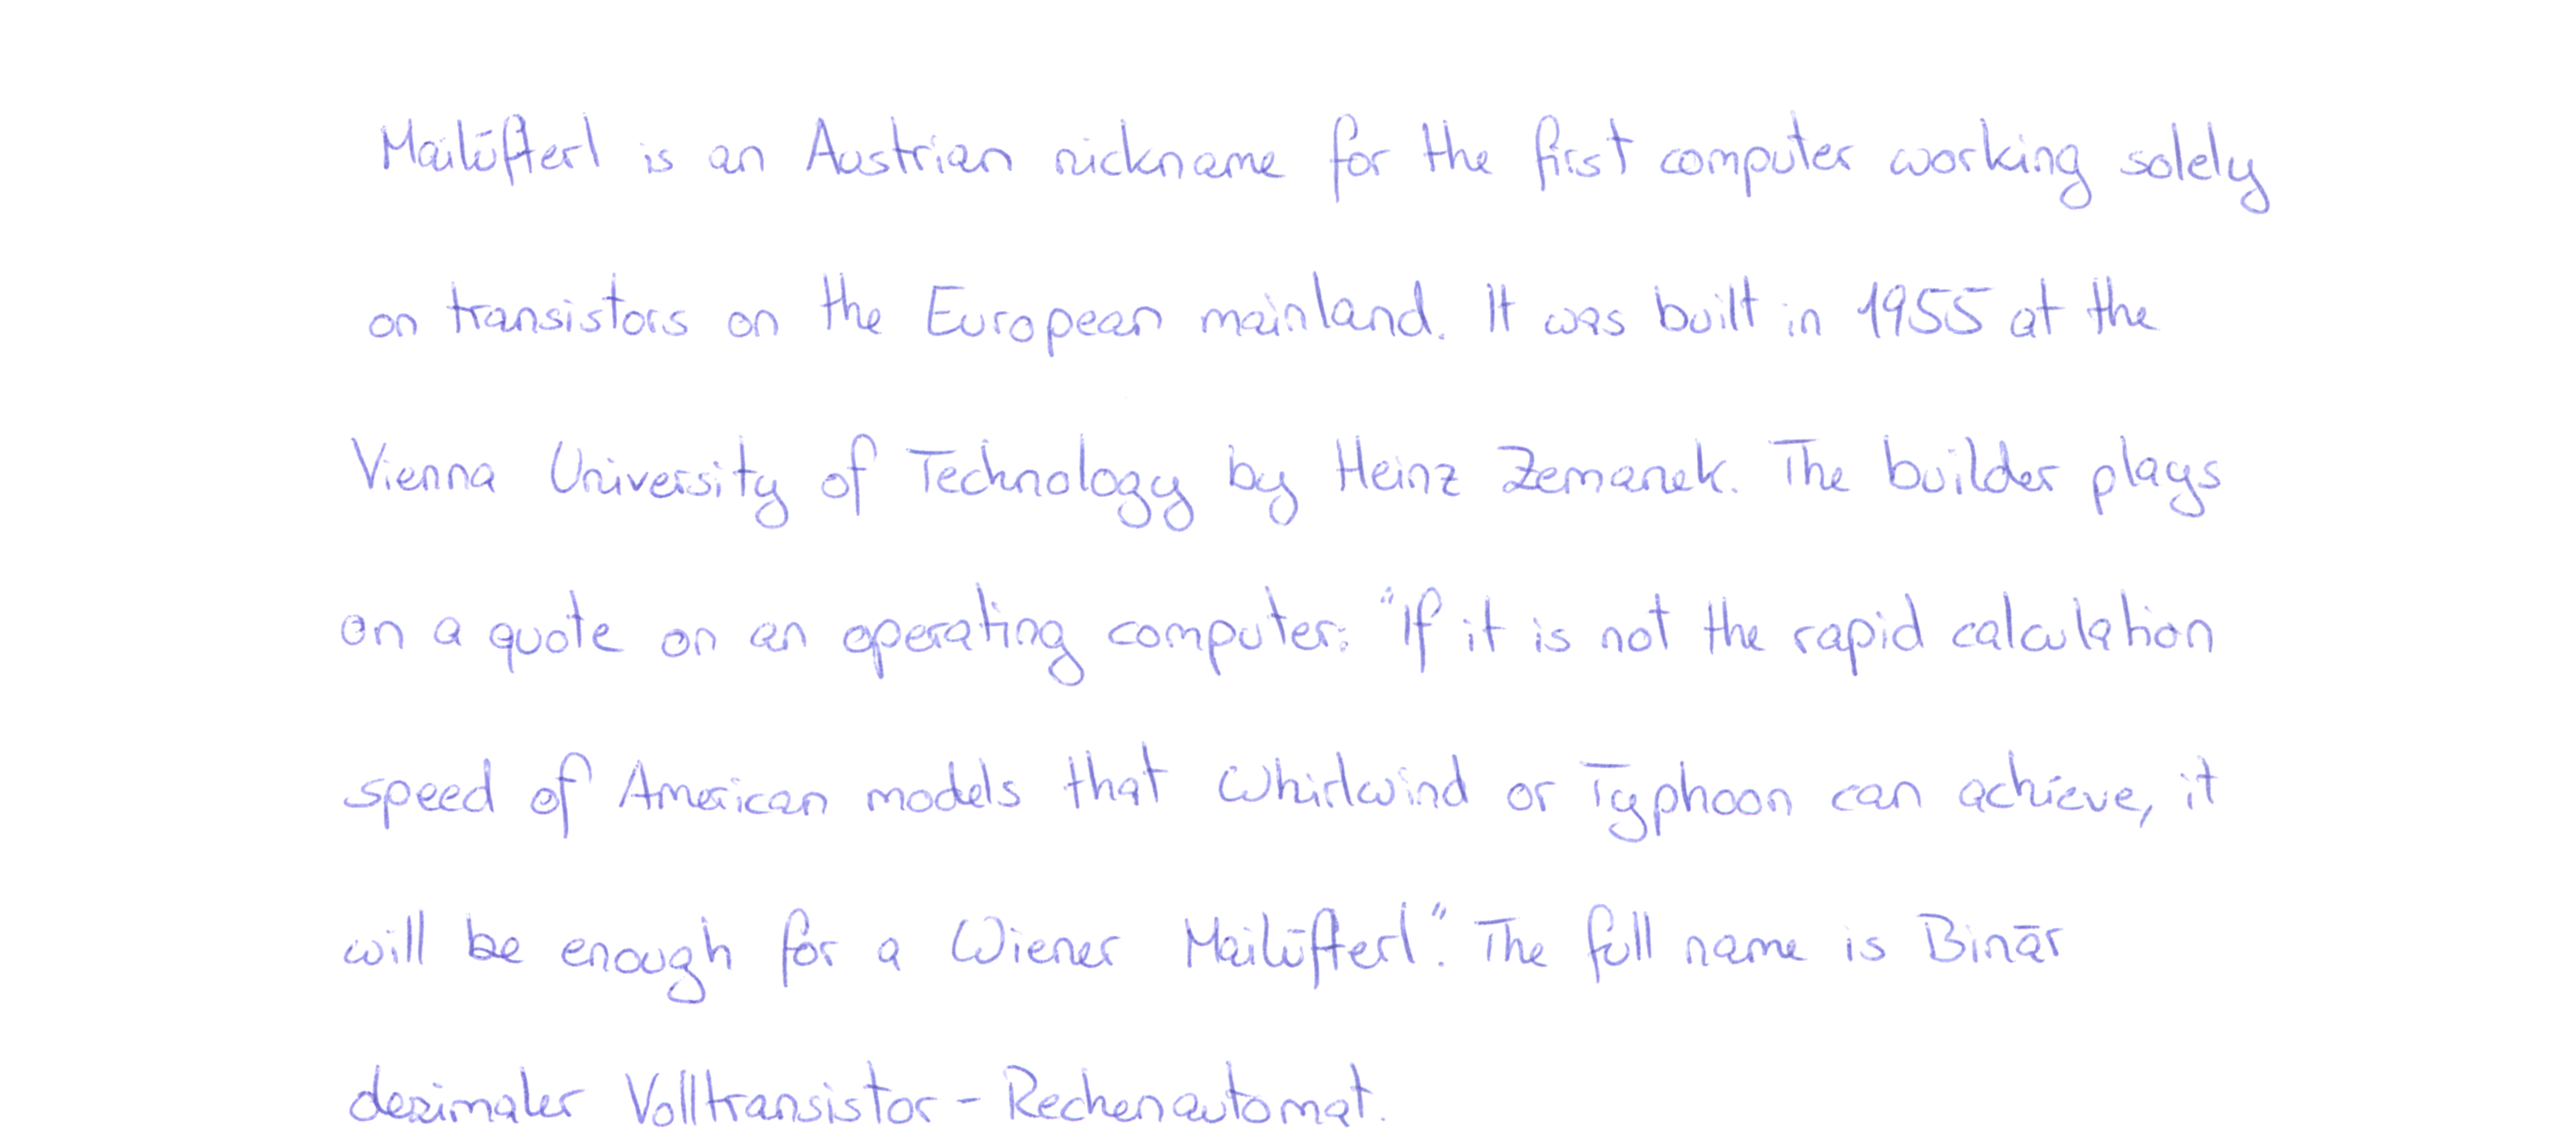 Mailüfterl is an Austrian nickname for the first computer working solely
on transistors on the European mainland. It was built in 1955 at the
Vienna University of Technology by Heinz Zemanek. The builder plays
on a quote on an operating computer: "If it is not the rapid calculation
speed of American models that Whirlwind or Typhoon can achieve, it
will be enough for a Wiener Mailüfterl". The full name is Binär
dezimaler Volltransistor-Rechenautomat.